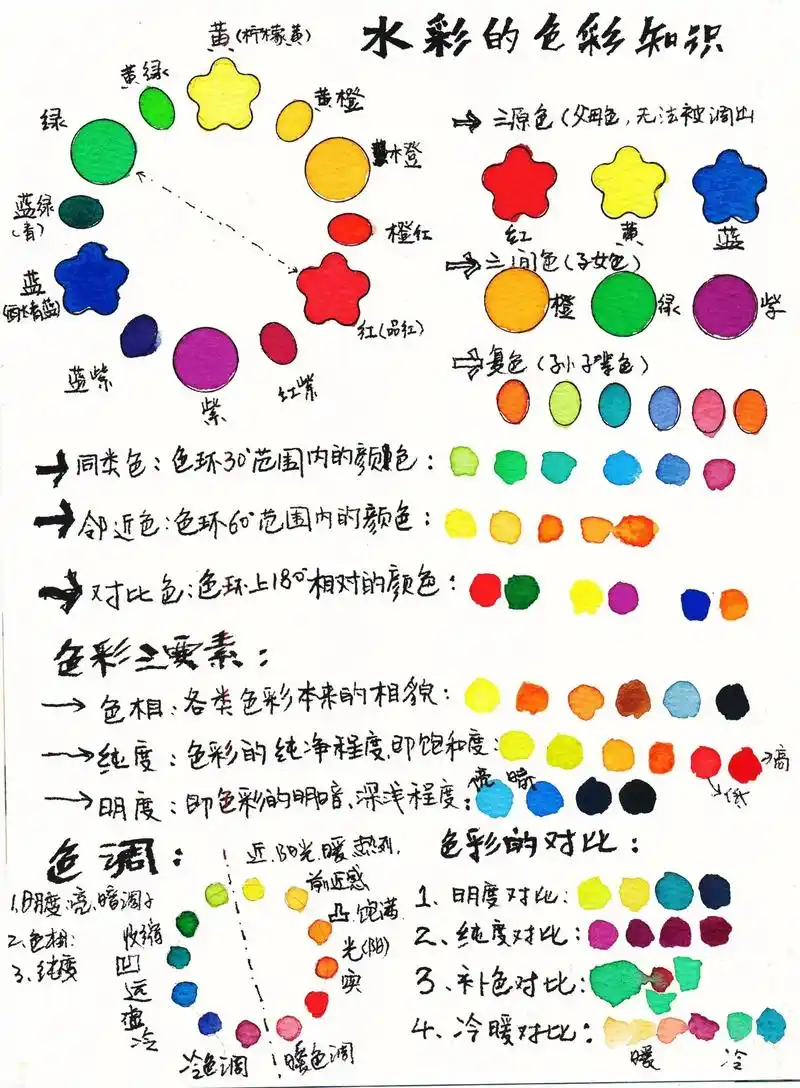 水彩的色彩知识
黄(柠檬黄)
黄绿
黄橙
绿
橙
蓝绿
(青)
橙红
蓝
红(品红)
蓝紫
紫
红紫
三原色(父母色,无法被调出
红 黄 蓝
三间色(子女色)
橙 绿 紫
复色(子小子辈色)
同类色:色环30°范围内的颜色:
邻近色:色环60°范围内的颜色:
对比色:色环上180°相对的颜色:
色彩三要素:
色相:各类色彩本来的相貌:
纯度:色彩的纯净程度,即饱和度:
高
低
亮 暗
明度:即色彩的明暗、深浅程度:
色调:
1.明度:亮、暗调子
2.色相:
3.纯度
近.阳光.暖.热烈.
前近感
凸.饱满
光(阳)
实
收缩
凹
远
虚
冷
冷色调
暖色调
色彩的对比:
1.明度对比:
2.纯度对比:
3.补色对比:
4.冷暖对比:
暖 冷